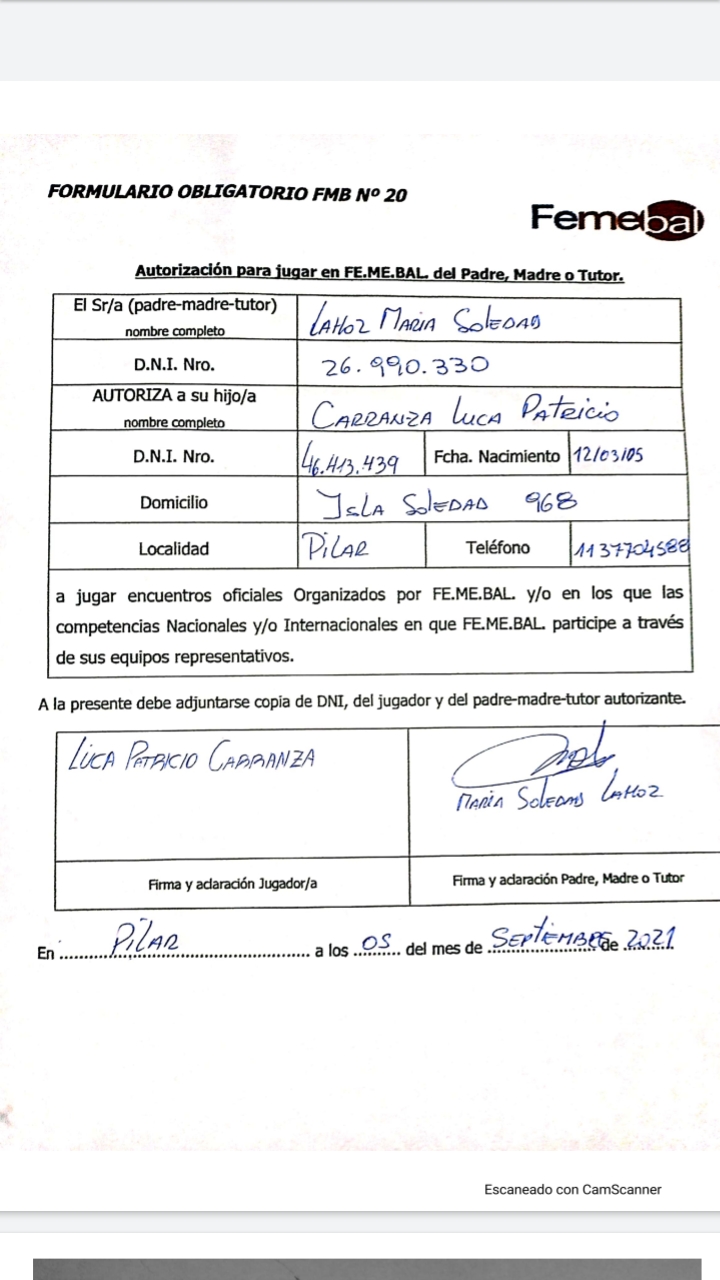 FORMULARIO OBLIGATORIO FMB Nº 20
Femebal
Autorización para jugar en FE.ME.BAL. del Padre, Madre o Tutor.
El Sr/a (padre-madre-tutor) nombre completo LAHOZ MARIA SOLEDAD
D.N.I. Nro. 26.990.330
AUTORIZA a su hijo/a nombre completo CARRANZA LUCA PATRICIO
D.N.I. Nro. 46.413.439 Fcha. Nacimiento 12/03/05
Domicilio ISLA SOLEDAD 968
Localidad PILAR Teléfono 1137704588
a jugar encuentros oficiales Organizados por FE.ME.BAL. y/o en los que las
competencias Nacionales y/o Internacionales en que FE.ME.BAL. participe a través
de sus equipos representativos.
A la presente debe adjuntarse copia de DNI, del jugador y del padre-madre-tutor autorizante.
LUCA PATRICIO CARRANZA
MARIA SOLEDAD LAHOZ
Firma y aclaración Jugador/a Firma y aclaración Padre, Madre o Tutor
En PILAR a los 05 del mes de SEPTIEMBRE de 2021
Escaneado con CamScanner